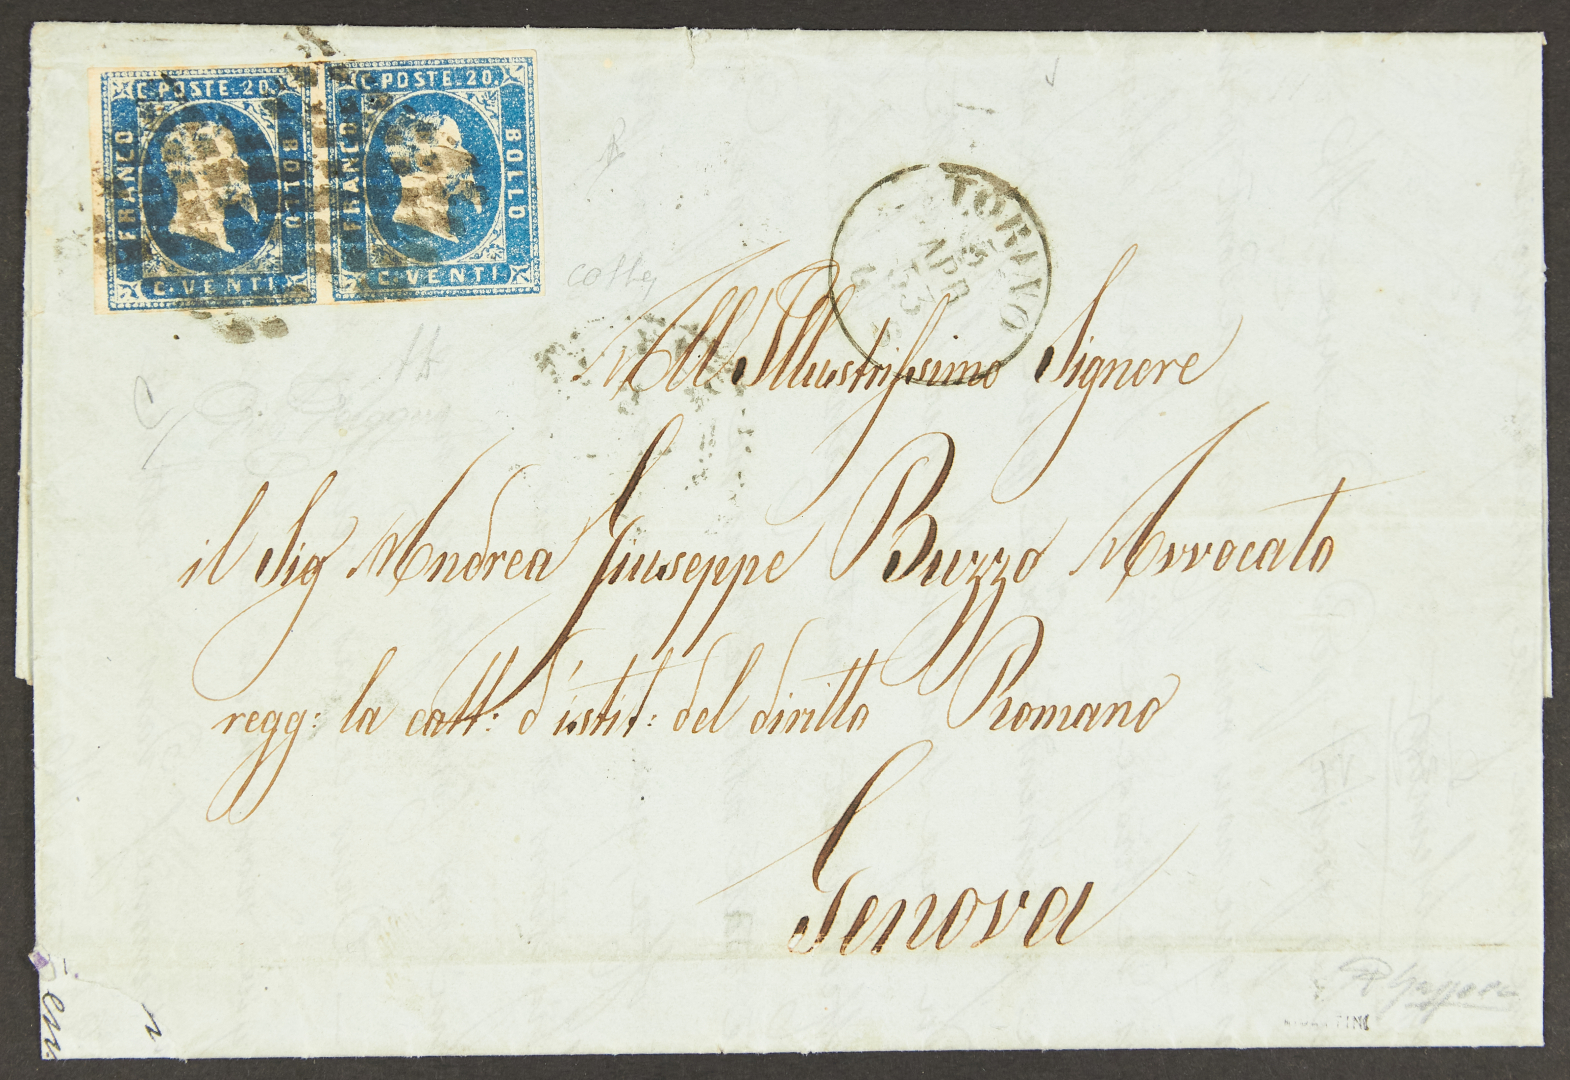 C.POSTE.20.
FRANCO
BOLLO
C.VENTI
C.POSTE.20.
FRANCO
BOLLO
C.VENTI
TORINO
5
APR
53
All'Illustrissimo Signore
il Sig Andrea Giuseppe Buzzo Avvocato
regg: la catt: d'istit: del diritto Romano
Genova